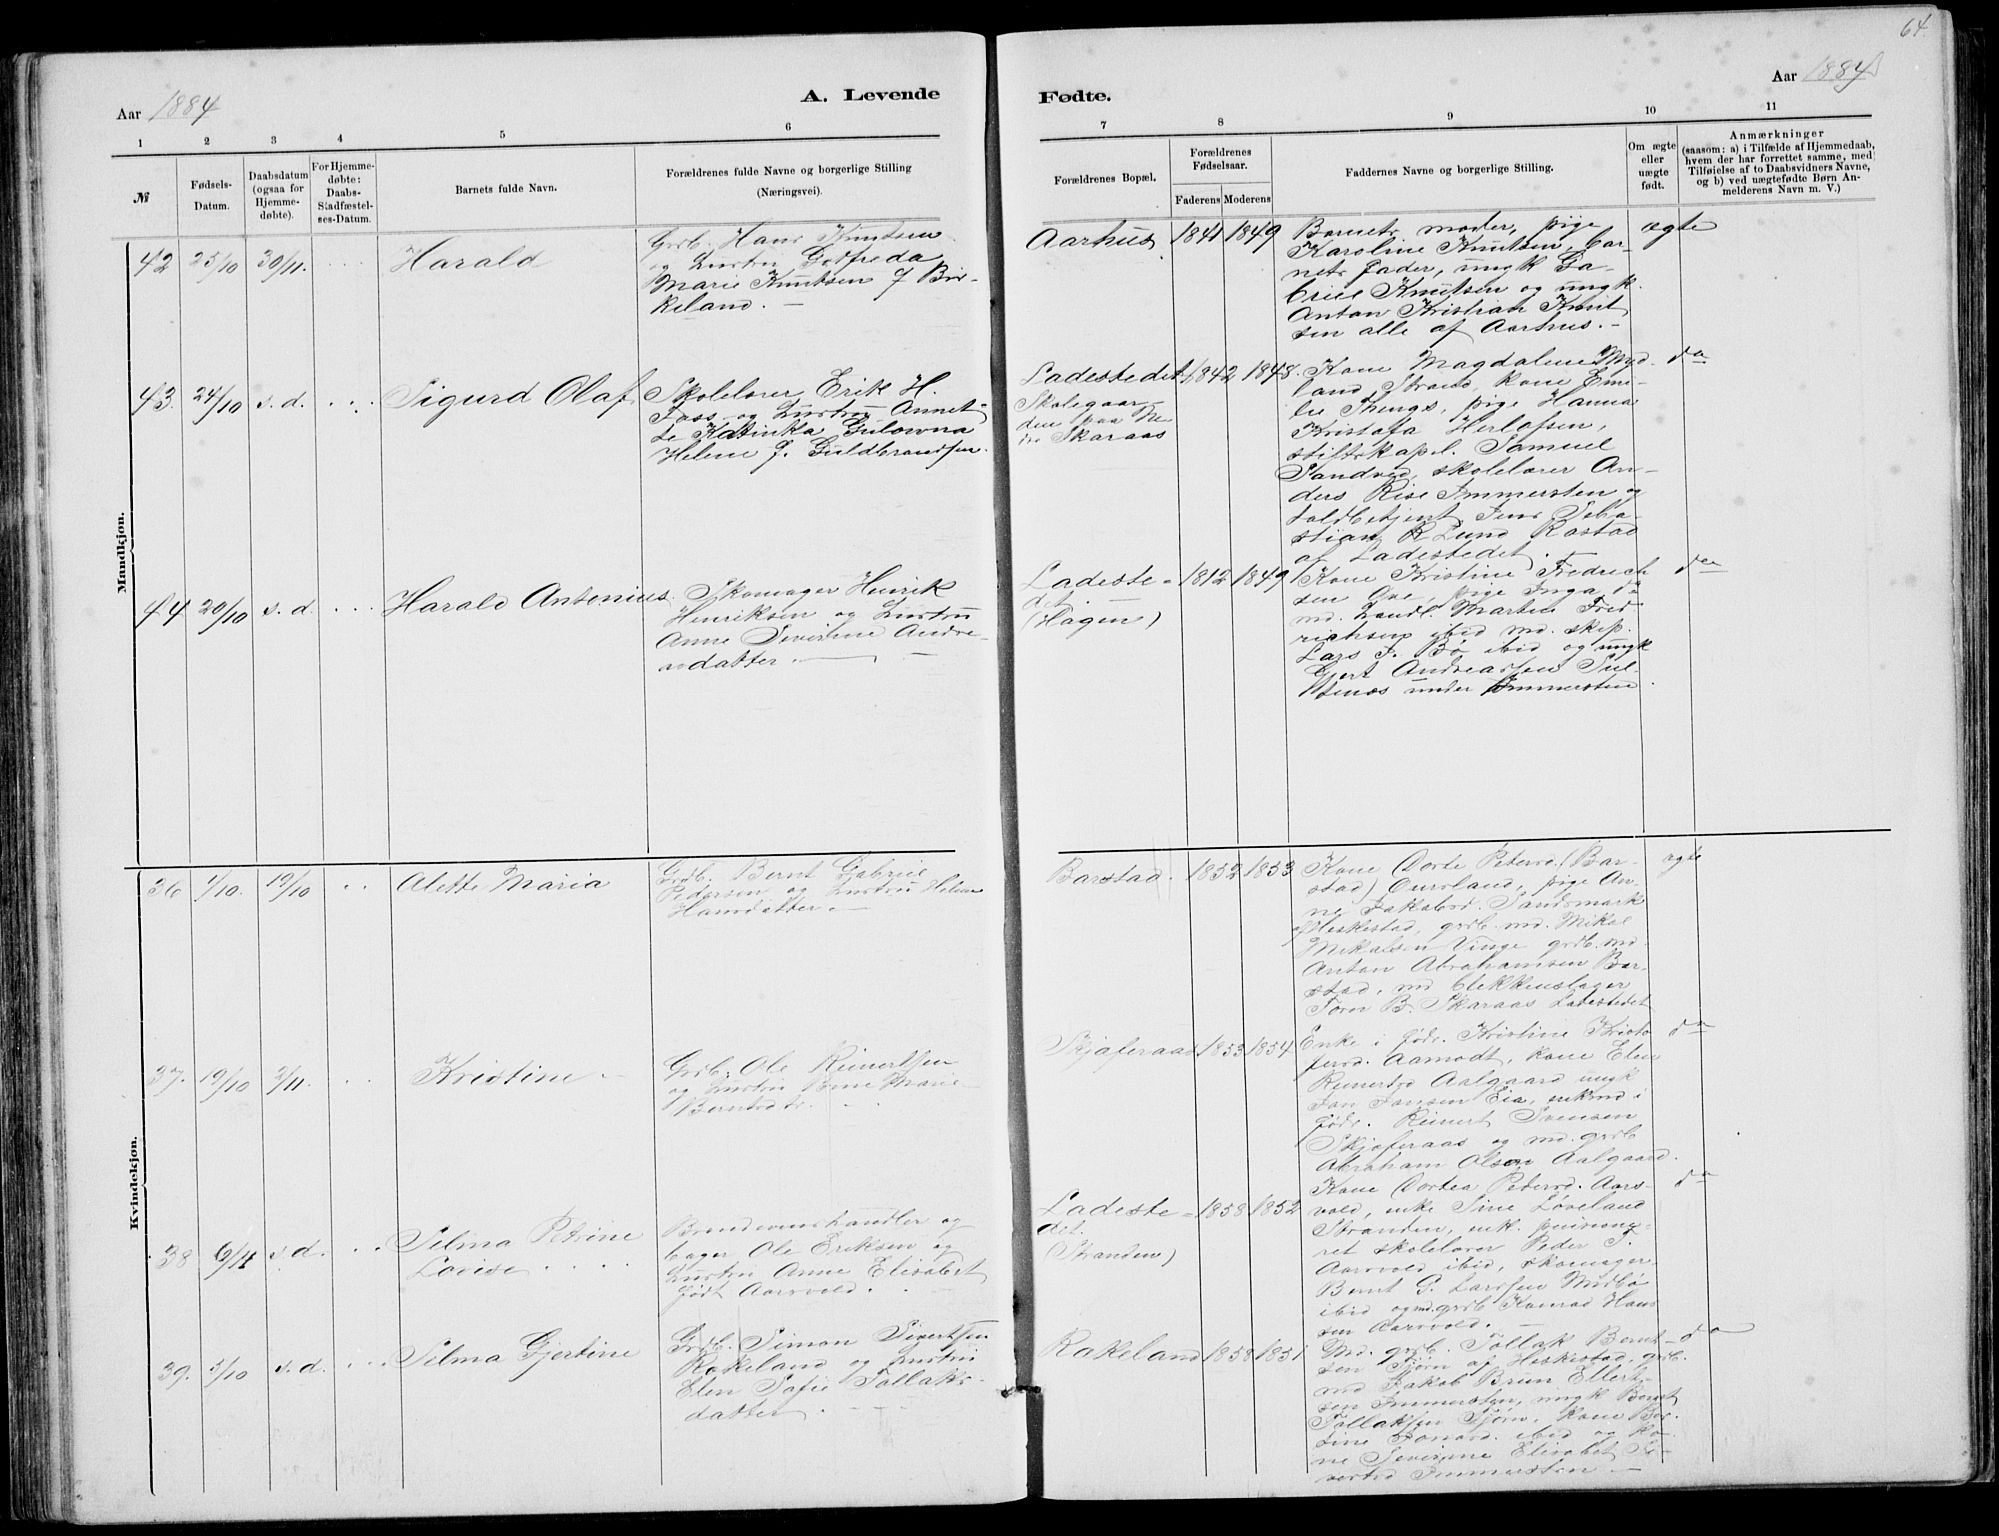 64.
Aar 1884
A. Levende
Fødte.
Aar 1884
1 2 3 4 5 6 7 8 9 10 11
№
Fødsels-
Datum.
Daabsdatum
(ogsaa for
Hjemme-
døbte).
For Hjemme-
døbte:
Daabs-
Stadfæstel-
ses-Datum.
Barnets fulde Navn.
Forældrenes fulde Navne og borgerlige Stilling
(Næringsvei).
Forældrenes Bopæl.
Forældrenes
Fødselsaar.
Faderens Moderens
Faddernes Navne og borgerlige Stilling.
Om ægte
eller
uægte
født.
Anmærkninger
(saasom: a) i Tilfælde af Hjemmedaab,
hvem der har forrettet samme, med
Tilføielse af to Daabsvidners Navne,
og b) ved uægtefødte Børn An-
melderens Navn m. V.)
Mandkjøn.
42 25/10 30/11.
Harald
Grdb. Hans Knutsen
og hustru Gotfreda
Marie Knutsen f. Bir-
keland. —
Aarhus 1841 1849
Barnets moder, pige
Karoline Knutsen, bar-
nets fader, ungk Ga-
briel Knutsen og ungk.
Anton Kristian Knut
sen alle af Aarhus. -
ægte
43. 24/10 s. d.
Sigurd Olaf
Skolelærer Erik H.
Foss og hustru Annet-
te Katinka Gulowna
Helene f. Guldbrandsen.
Ladestedet
Skolegaar-
den paa Ne
dre Skaraas
1842 1848.
Kone Magdalene Myd-
land Strand, kone Emi-
lie Thengs, pige Hanna
Kristofa Herlofsen,
stiftskapel. Samuel
Sandved, skolelærer An-
ders Rise Immersten og
toldbetjent Jens Seba-
stian R Lund Rostad
af Ladestedet.
do
44 20/10 s. d.
Harald Antonius
Skomager Henrik
Henriksen og hustru
Anne Severine Andre-
asdatter. —
Ladeste-
det.
(Hagen)
1812 1849
Kone Kristine Fredrich
sen Ove, pige Inga do
md. Martin Fred
richsen ibid md. skip.
Lars F. Bø ibid og ungk
Gert Andreassen
under Immersten.
do
Kvindekjøn.
36 1/10. 19/10
Alette Maria
Grdb. Bernt Gabriel
Pedersen og hustru Helene
Hansdatter. —
Barstad. 1852 1853
Kone Dorte Petersd. (Bar-
stad) Oursland, pige An-
ne Jakobsd. Sandsmark
af Heskestad, grdb. md. Mikal
Mikalsen Vinge grdb. md
Anton Abrahamsen Bar-
stad, md blekkenslager
Tørn B. Skaraas Ladestedet
ægte
37. 19/10 2/11.
Kristine —
Grdb. Ole Reinertsen
og hustru Bine Marie
Berntsdtr.
Skjæferaas 1853 1854
Enke i føde. Kristine Kristo
fersd. Aamodt, kone Elen
Reinertsd Aalgaard ungk
Jan Jansen Eia, enkmd i
føde. Reinert Svensen
Skjæferaas og md. grdb
Abraham Olsen Aalgaard.
do
38 6/4 s. d.
Selma Petrine
Lovise
Brændevinshandler og
bager Ole Eriksen og
hustru Anne Elisabet
født Aarsvold.
Ladeste-
det.
(Stranden)
1858 1852
Kone Dortea Petersd. Aars-
vold, enke Sine Løveland
Stranden, enk. pensione-
ret skolelærer Peder T.
Aarsvold ibid, skomager
Bernt G. Larssen Midbø
ibid og md. grdb Konrad Hans
sen Aarsvold.
do
39. 5/10 s. d.
Selma Gjertine
Grdb. Simon Sivertsen
Rakeland og hustru
Elen Sofie Tollaks-
datter.
Rakeland 1858 1851
Md. grdb. Tollak Bernt-
sen Tjørn af Heskestad, grdb.
md Jakob Brun Ellert-
sen Immersten, ungk Bernt
Tollaksen Tjørn. Kone Ber-
tine ibid og ko-
ne Severine Elisabet Si-
vertsd Immersten —
do